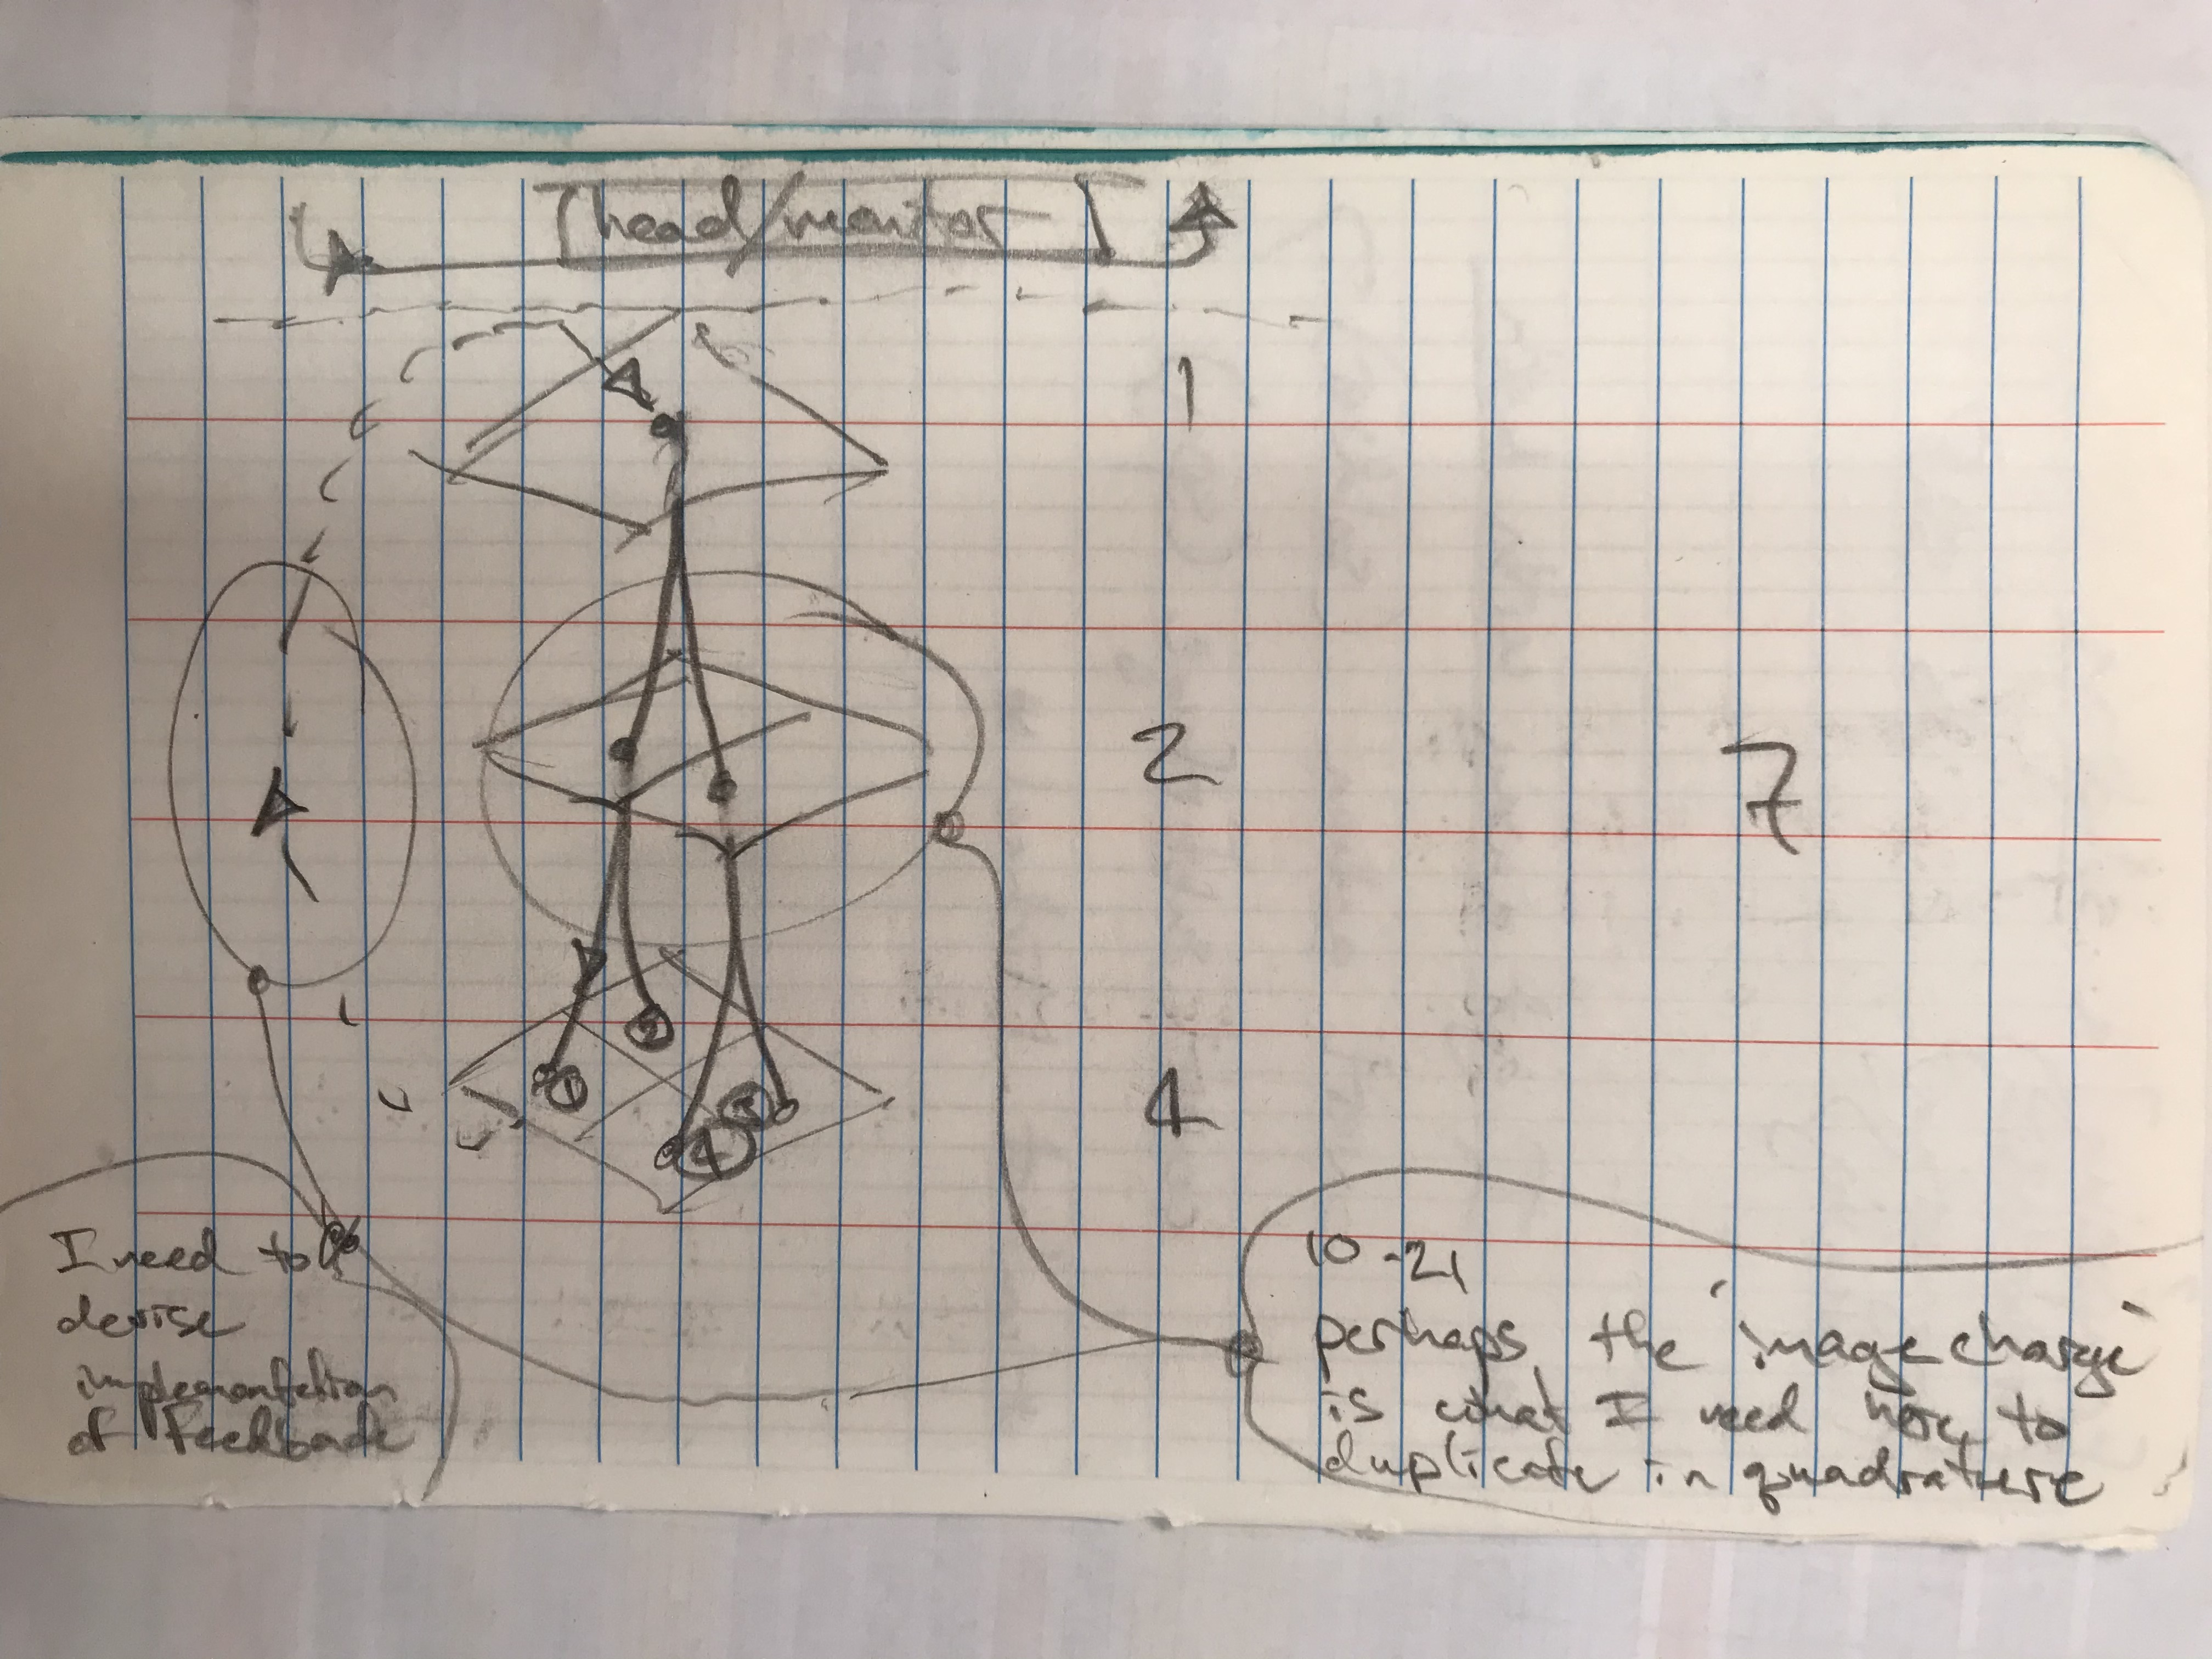 head/monitor
1
2
7
4
1
2
3
4
I need to
devise
implementation
of feedback
10-21
perhaps, the "image charge"
is what I need here, to
duplicate in quadrature